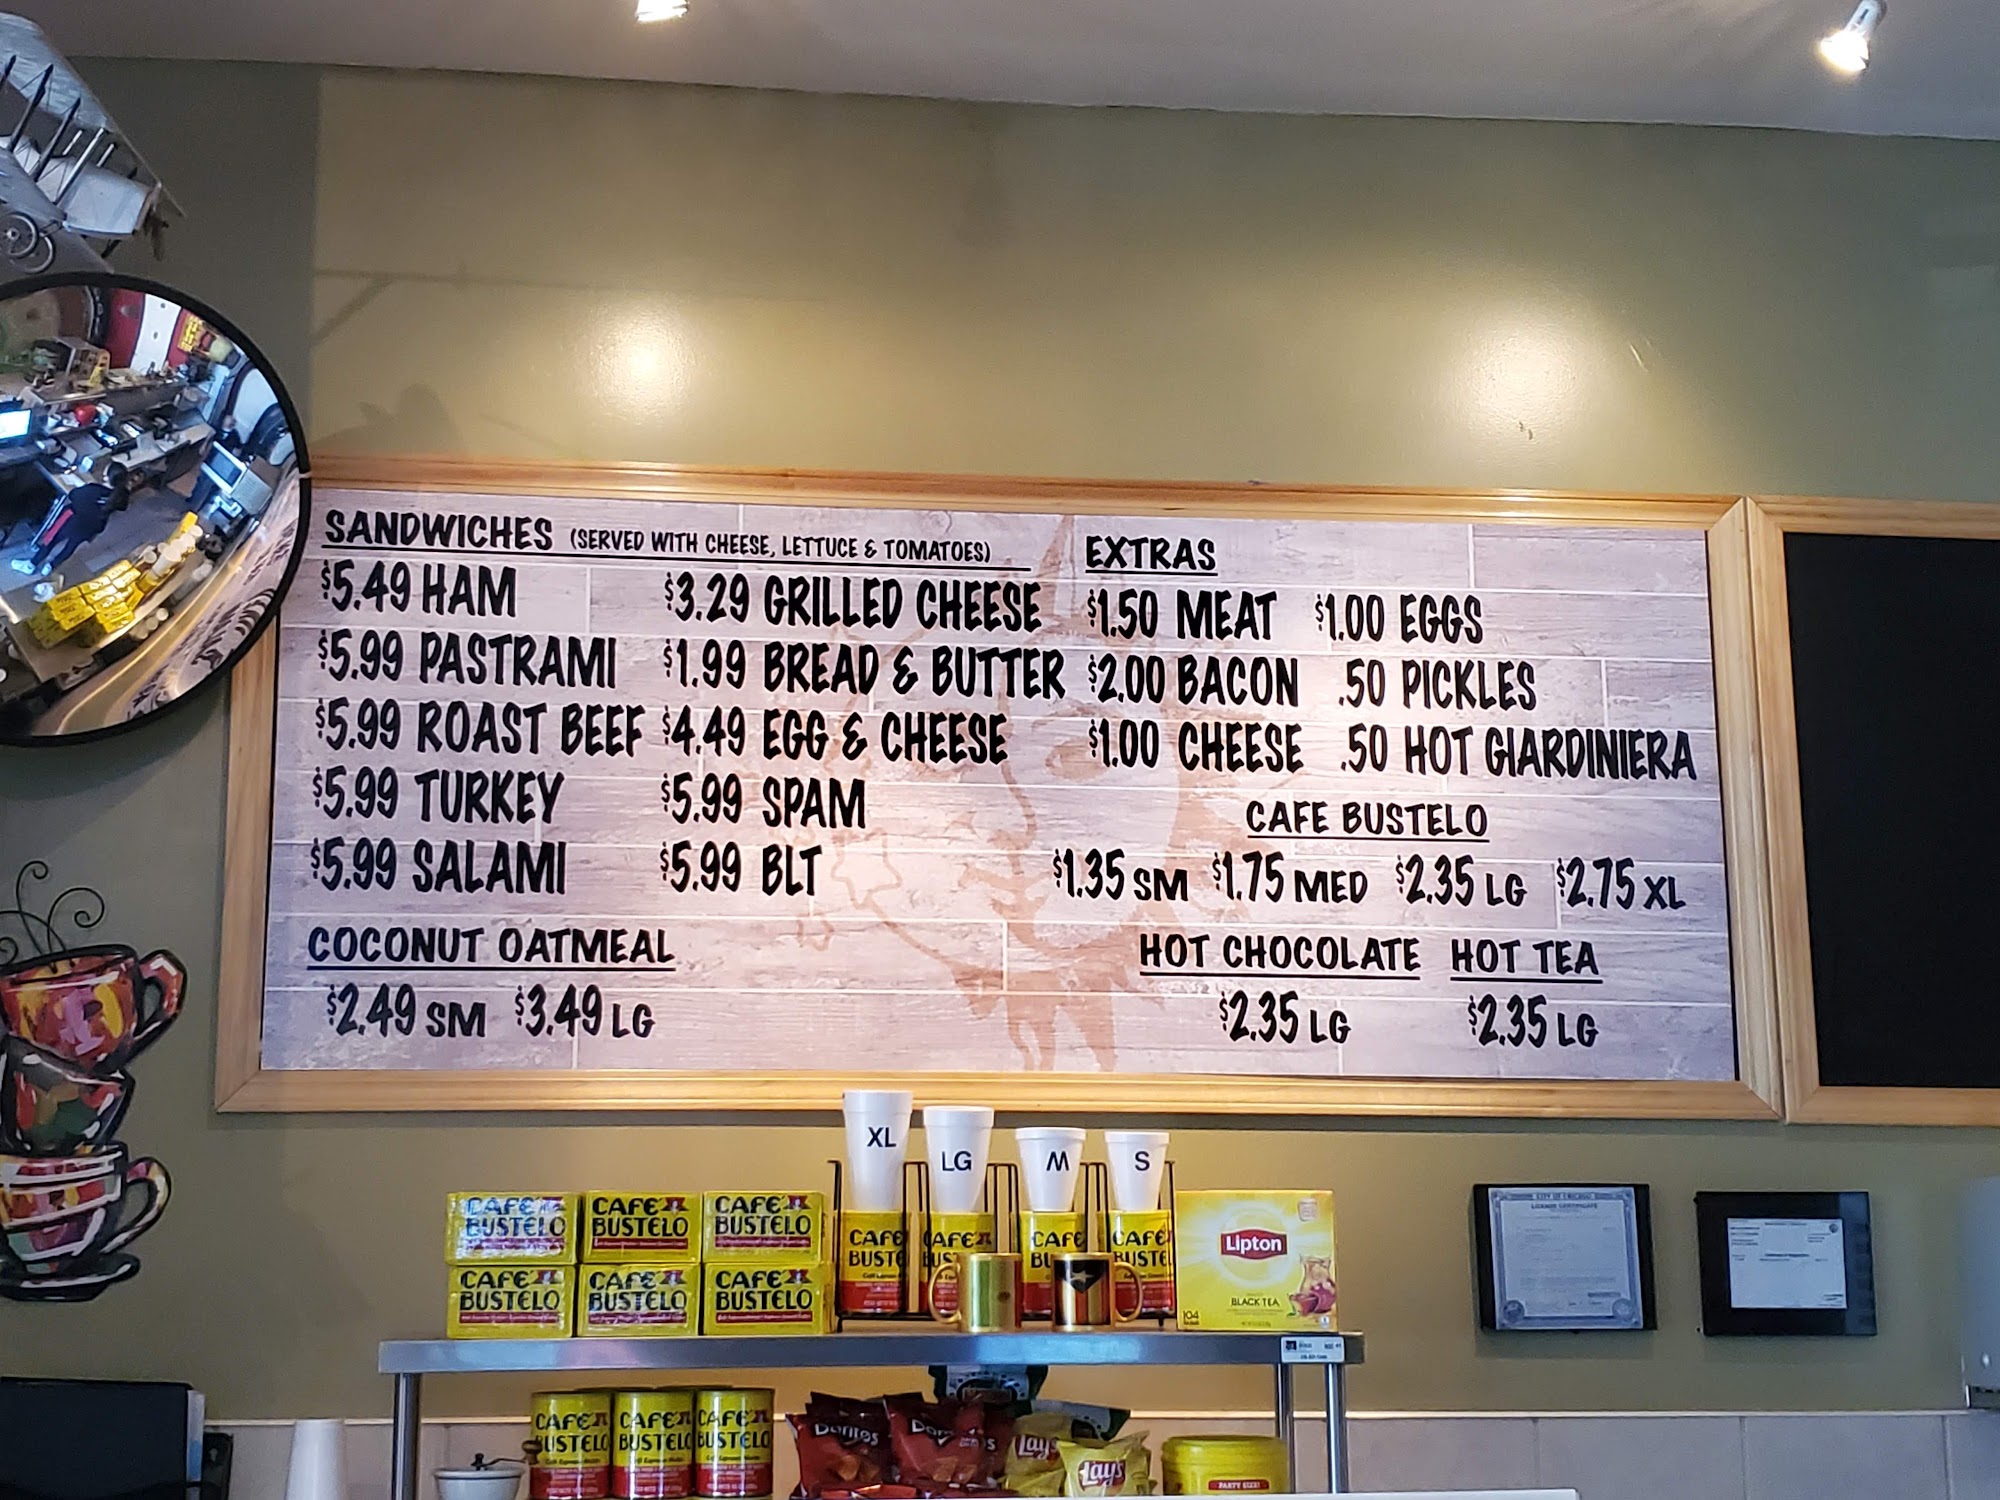 SANDWICHES (SERVED WITH CHEESE, LETTUCE & TOMATOES)
$5.49 HAM
$5.99 PASTRAMI
$5.99 ROAST BEEF
$5.99 TURKEY
$5.99 SALAMI
$3.29 GRILLED CHEESE
$1.99 BREAD & BUTTER
$4.49 EGG & CHEESE
$5.99 SPAM
$5.99 BLT
COCONUT OATMEAL
$2.49 SM $3.49 LG
EXTRAS
$1.50 MEAT $1.00 EGGS
$2.00 BACON .50 PICKLES
$1.00 CHEESE .50 HOT GIARDINIERA
CAFE BUSTELO
$1.35 SM $1.75 MED $2.35 LG $2.75 XL
HOT CHOCOLATE HOT TEA
$2.35 LG $2.35 LG
XL LG M S
CAFE BUSTELO
CAFE BUSTELO
CAFE BUSTELO
CAFE BUSTELO
CAFE BUSTELO
CAFE BUSTELO
CAFE
BUSTE
CAFE
BUS
CAFE
BU
CAFE
BUSTE
Lipton
BLACK TEA
104
CITY OF CHICAGO
LICENSE CERTIFICATE
CAFE BUSTELO
CAFE BUSTELO
CAFE BUSTELO
Doritos
Lay's
Lay's
PARTY SIZE!